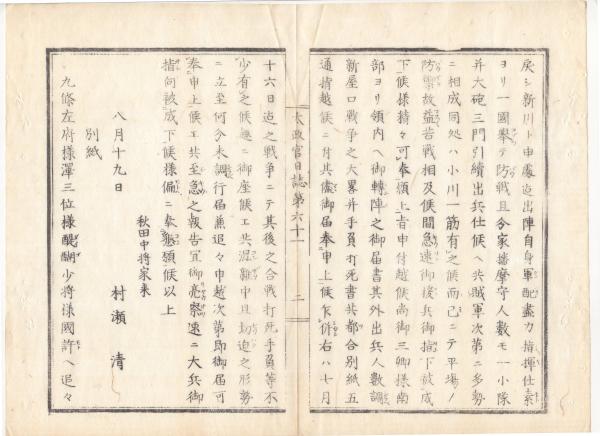 戻シ新川ト申處迄出陣自身軍配盡力指揮仕素
ヨリ一國擧テ防戰且分家播摩守人數モ一小隊
并大砲三門引續出兵仕候ヘ共賊軍次第ニ多勢
ニ相成同処ハ小川一筋有之候而已ニテ平場ノ
防禦故益苦戰相及候間急速御援兵御指下被成
下候様精々可奉願上旨申付越候尚御三卿様南
部ヨリ領内ヘ御轉陣之御届書其外出兵人數調
新屋口戰争之大畧并手負打死書共都合別紙五
通指越候ニ付其儘御届奉申上候乍併右ハ七月
太政官日誌第六十一
二
十六日迄之戰争ニテ其後之合戰打死手負等不
少有之候趣ニ御座候エ共混雜中且切迫之形勢
ニ立至何分未調行届兼追々申越次第即御届可
奉申上候エ共至急之報告宜御亮察速ニ大兵御
指向被成下候様偏ニ奉懇願候以上
秋田中将家来
八月十九日
村瀬清
別紙
九條左府様澤三位様醍醐少将様國許ヘ追々